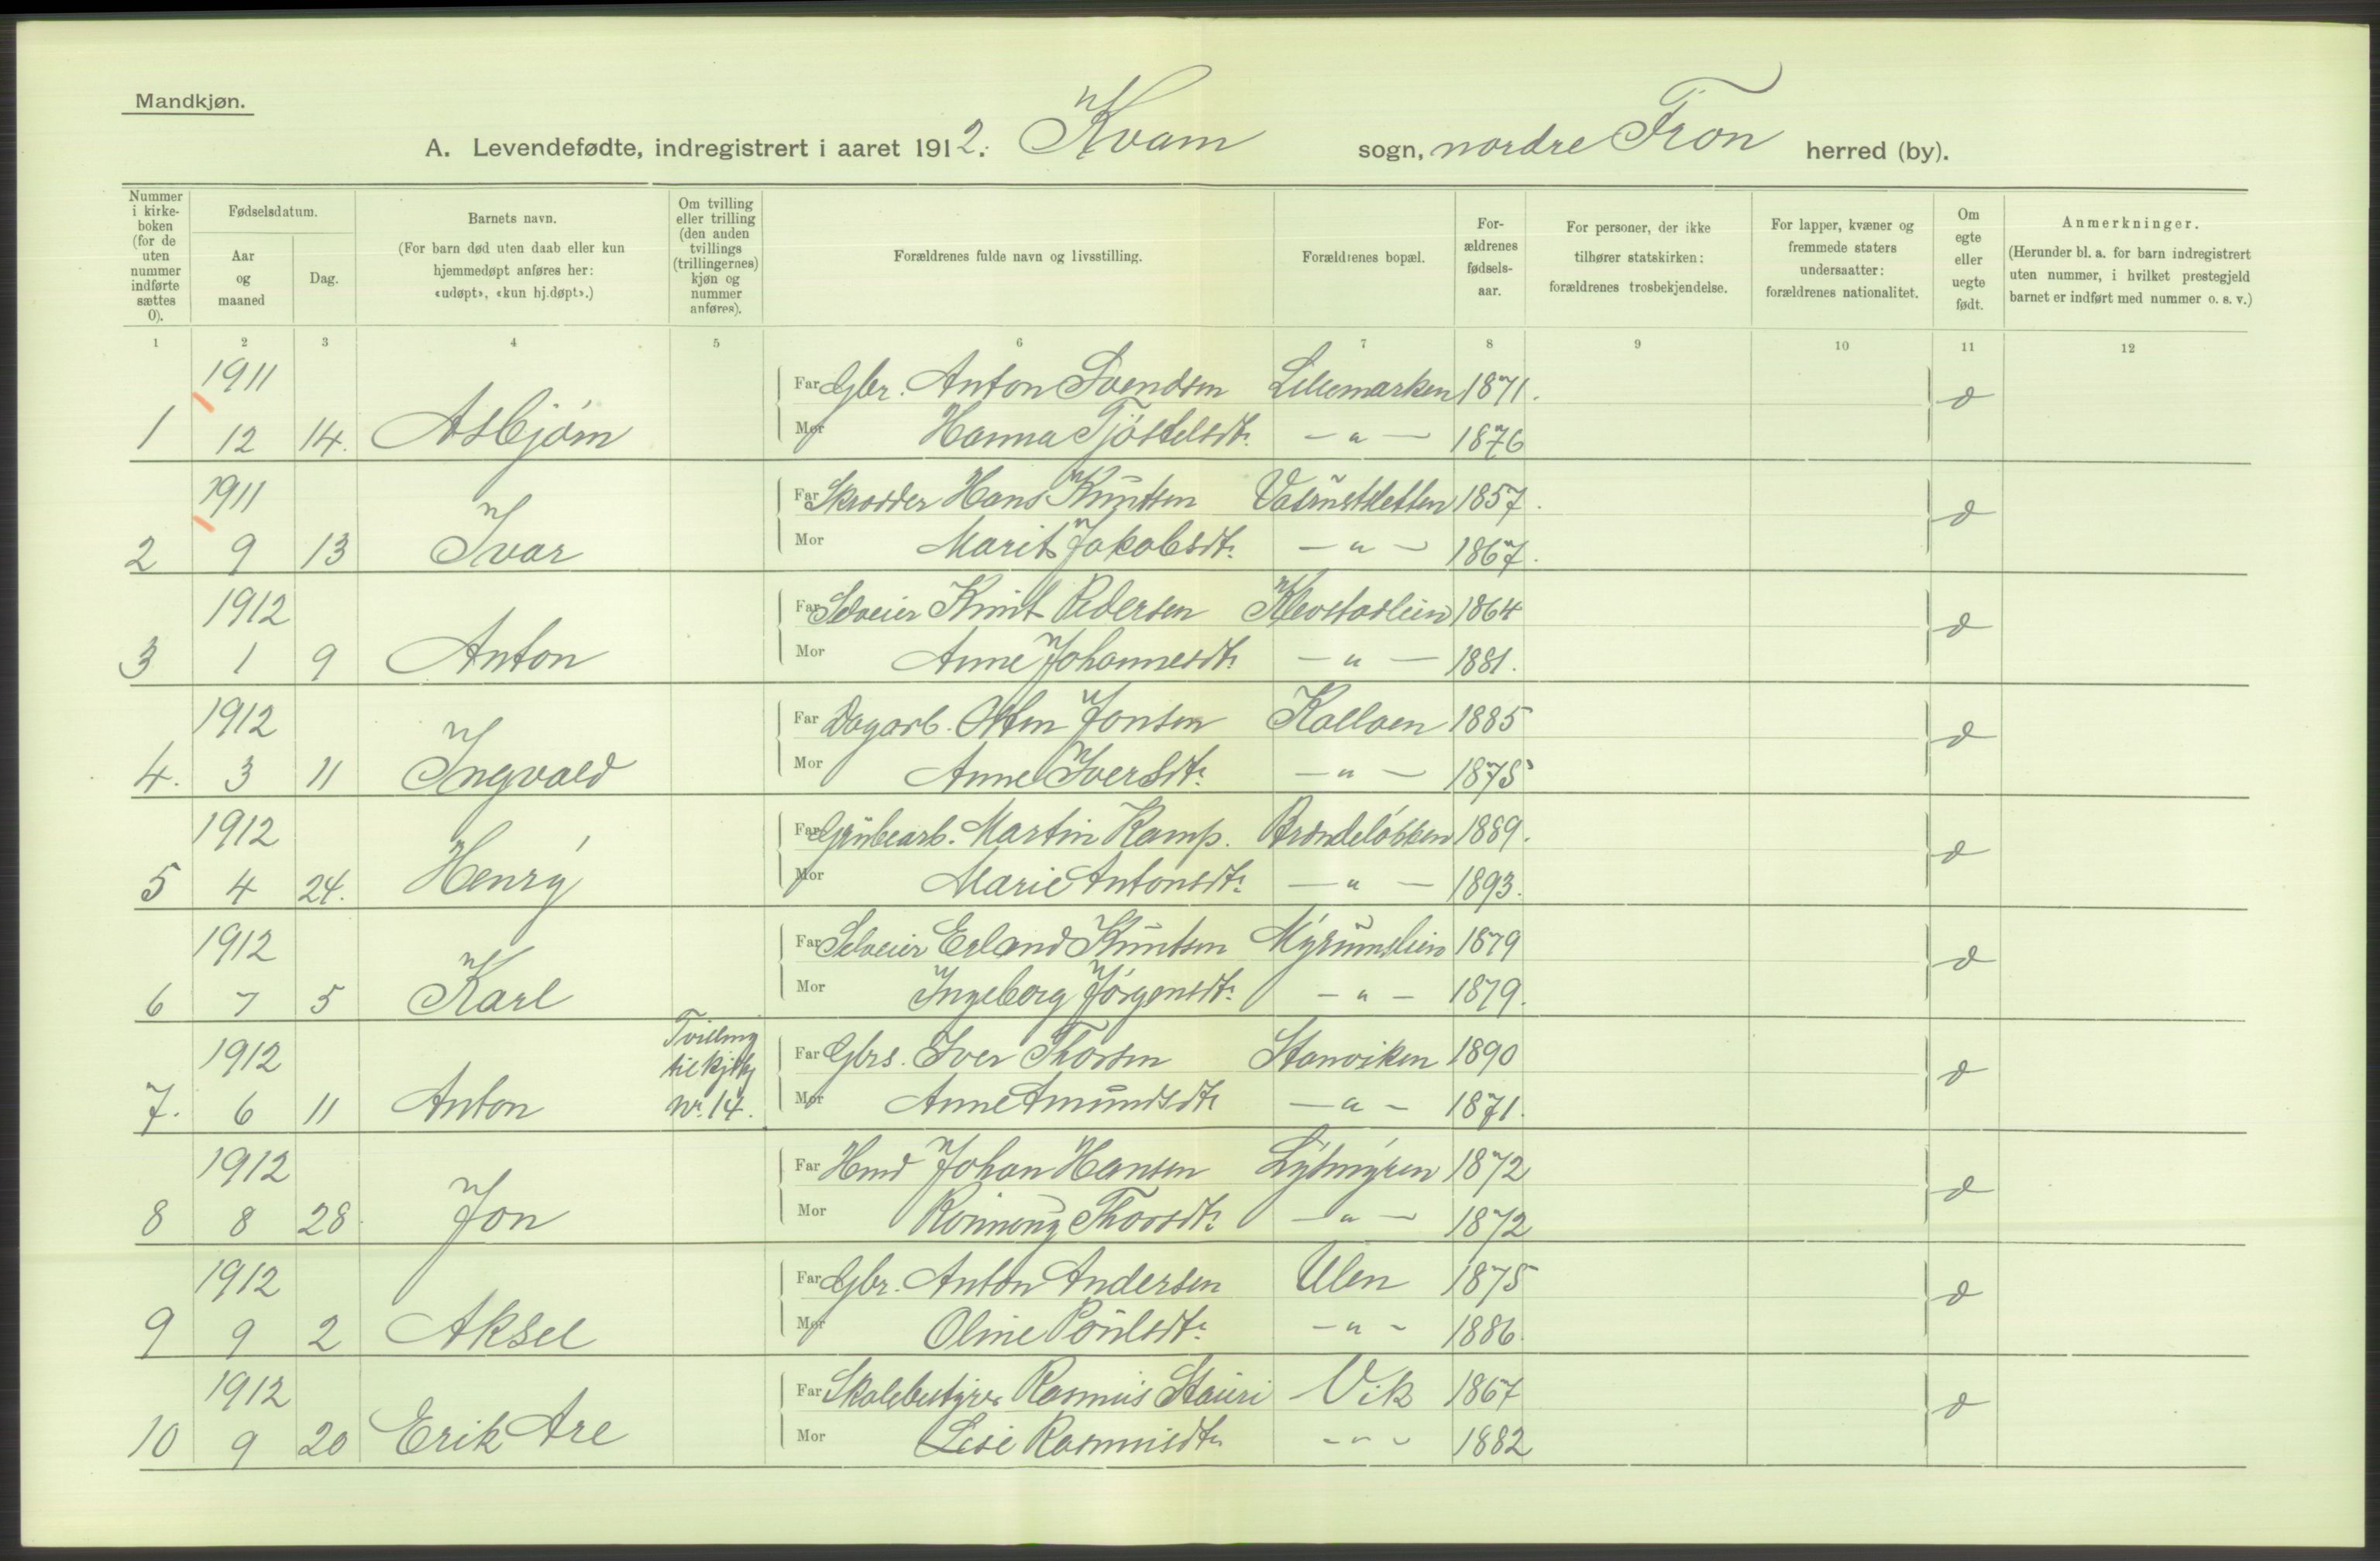 Mandkjøn.
A. Levendefødte, indregistrert i aaret 1912. Kvam sogn, nordre Fron herred (by).
Nummer i kirke-boken (for de uten nummer indførte sættes 0).
Fødselsdatum.
Aar og maaned
Dag.
Barnets navn.
(For barn død uten daab eller kun hjemmedøpt anføres her: «udøpt», «kun hj.døpt».)
Om tvilling eller trilling (den anden tvillings (trillingernes) kjøn og nummer anføres).
Forældrenes fulde navn og livsstilling.
Forældrenes bopæl.
For-ældrenes fødsels-aar.
For personer, der ikke tilhører statskirken: forældrenes trosbekjendelse.
For lapper, kvæner og fremmede staters undersaatter: forældrenes nationalitet.
Om egte eller uegte født.
Anmerkninger.
(Herunder bl. a. for barn indregistrert uten nummer, i hvilket prestegjeld barnet er indført med nummer o. s. v.)
1 2 3 4 5 6 7 8 9 10 11 12
1911 Far Gbr. Anton Svendsen Lillemarken 1871.
1 12 14. Asbjørn Mor Hanna Tjøstelsdtr. — " — 1876
1911 Far Skrædder Hans Knutsen 1857.
2 9 13 Ivar Mor Marit Jakobsdtr. — " — 1867.
1912 Far Selveier Knut Pedersen Klevstadlien 1864
3 1 9 Anton Mor Anne Johannesdtr — " — 1881.
1912 Far Dagarb. Otten Jonsen 1885
4. 3 11 Ingvald Mor Anne Iversdtr. — " — 1875
1912 Far Grubearb. Martin Kamp. Brændeløkken 1889.
5 4 24. Henry Mor Marie Antonsdtr. — " — 1893.
1912 Far Selveier Erland Knutsen Myrumslien 1879
6 7 5 Karl Mor Ingeborg Jørgensdtr. — " — 1879.
Tvilling
1912 til Far Gbrs. Iver Thorsen Stamviken 1890
7. 6 11 Anton nr. 14. Mor Anne Amundsdtr — " — 1871.
1912 Far Hmd Johan Hansen 1872
8 8 28 Jon Mor Rønnoug Thorsdtr. — " — 1872
1912 Far Gbr. Anton Andersen Ulen 1875
9 9 2 Aksel Mor Oline Poulsdtr. — " — 1886
1912 Far Skolebestyrer Rasmus Stauri Vik 1867
10 9 20 Erik Are Mor Lise Rasmusdtr — " — 1882